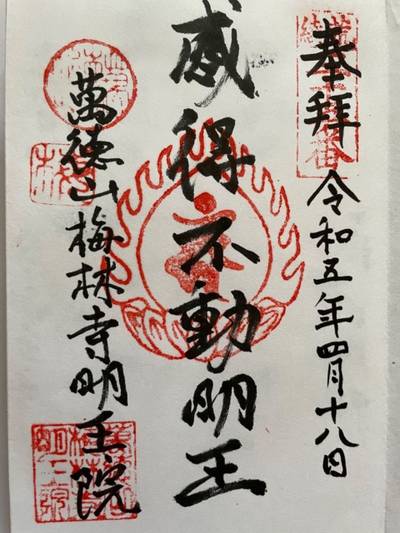 奉拝
令和五年四月十八日
感得不動明王
萬徳山梅林寺明王院